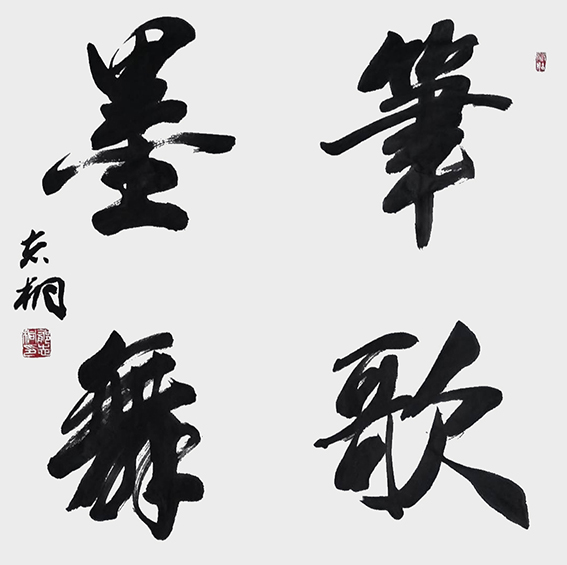 筆歌
墨舞
志桐